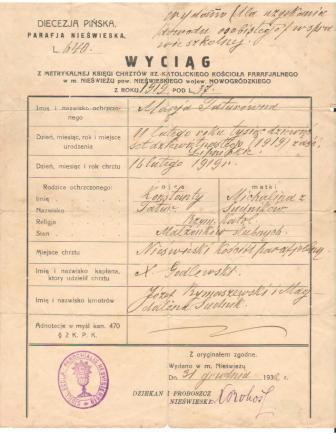 DIECEZJA PIŃSKA.
PARAFJA NIEŚWIESKA.
L. 640.
Wydano dla uzyskania
dowodu osobistego w spra
wie szkolnej.
WYCIĄG
Z METRYKALNEJ KSIĘGI CHRZTÓW RZ.-KATOLICKIEGO KOŚCIOŁA PARAFJALNEGO
w m. NIEŚWIEŻU pow. NIEŚWIESKIEGO wojew. NOWOGRÓDZKIEGO
Z ROKU 1919 POD L. 37.
Imię i nazwisko ochrzczonego. Marja
Dzień, miesiąc, rok i miejsce urodzenia
11 lutego roku tysiąc dziewięć
set dziewiętnastego (1919) zaść.
Dzień, miesiąc i rok chrztu 16 lutego 1919 r.
Rodzice ochrzczonego: ojca matki
Imię Konstanty Michalina z
Nazwisko
Religia Rzym. Katol.
Stan Małżonków ślubnych.
Miejsce chrztu Nieświeski Kościół parafjalny
Imię i nazwisko kapłana, który udzielił chrztu X. Godlewski.
Imię i nazwisko kmotrów Józef Rymaszewski i Mag
dalena
Adnotacje w myśl kan. 470 § 2 K. P. K.
Z oryginałem zgodne.
Wydano w m. Nieświeżu
Dn. 31 grudnia 193
DZIEKAN I PROBOSZCZ
NIEŚWIESKI: